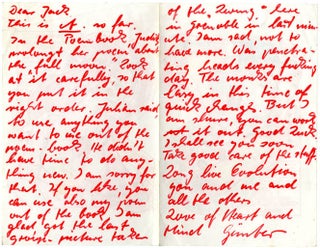 Dear Jack
This is it so far.
In the Poem book, Judith
prolongt he poem about
the full moon. Look
at it carefully, so that
you put it in the
right order. Julian said,
to use anything you
want to use out of the
book. He didn't
have time to do any-
thing new. I am sorry for
that. If you like, you
can use also my poem
out of the book. I am
glad got the last
group-picture taken
of the "Living" here
in grenoble in last min-
ute. I am sad, not to
have more. Was
heads every fucking
day. The monks are
lazy in this time of
quick change. But I
am shure, you can work
it out. Good luck
I shall see you soon
Take good care of the stuff.
Long live Evolution
you and me and
all the others
Love of Heart and
Mind Günter